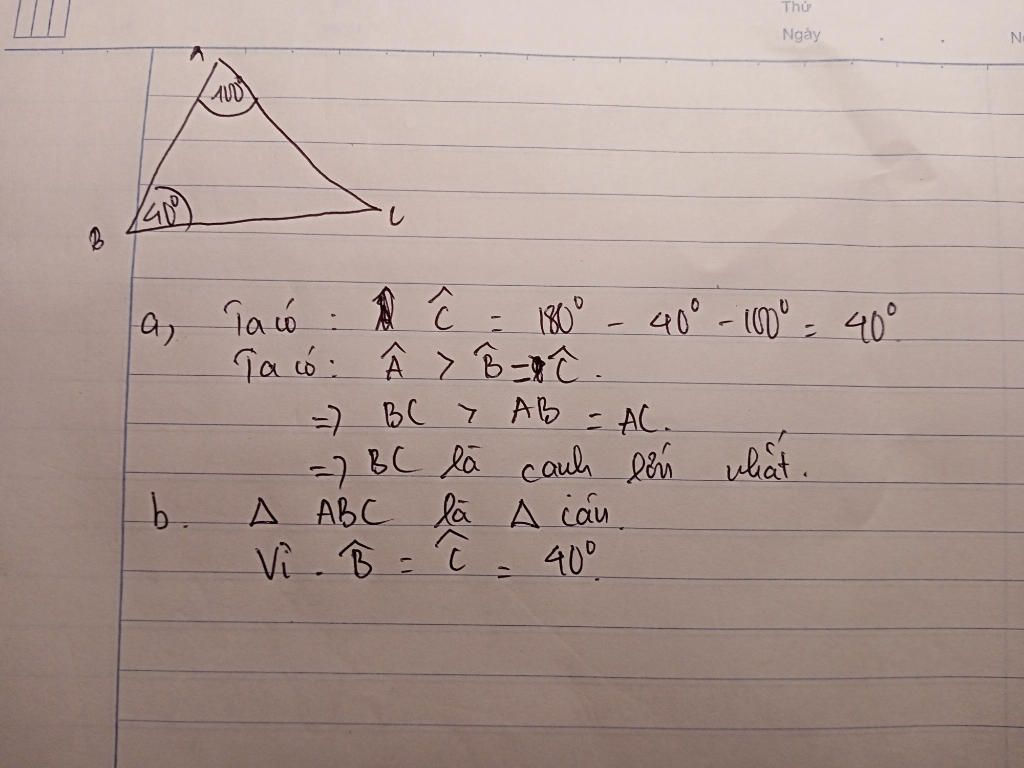 Thứ
Ngày
A
100°
40°
B
C
a, Ta có : Ĉ = 180° - 40° - 100° = 40°
Ta có : Â > B̂ = Ĉ .
=> BC > AB = AC.
=> BC là cạnh lớn nhất .
b. Δ ABC là Δ cân.
Vì . B̂ = Ĉ = 40°.